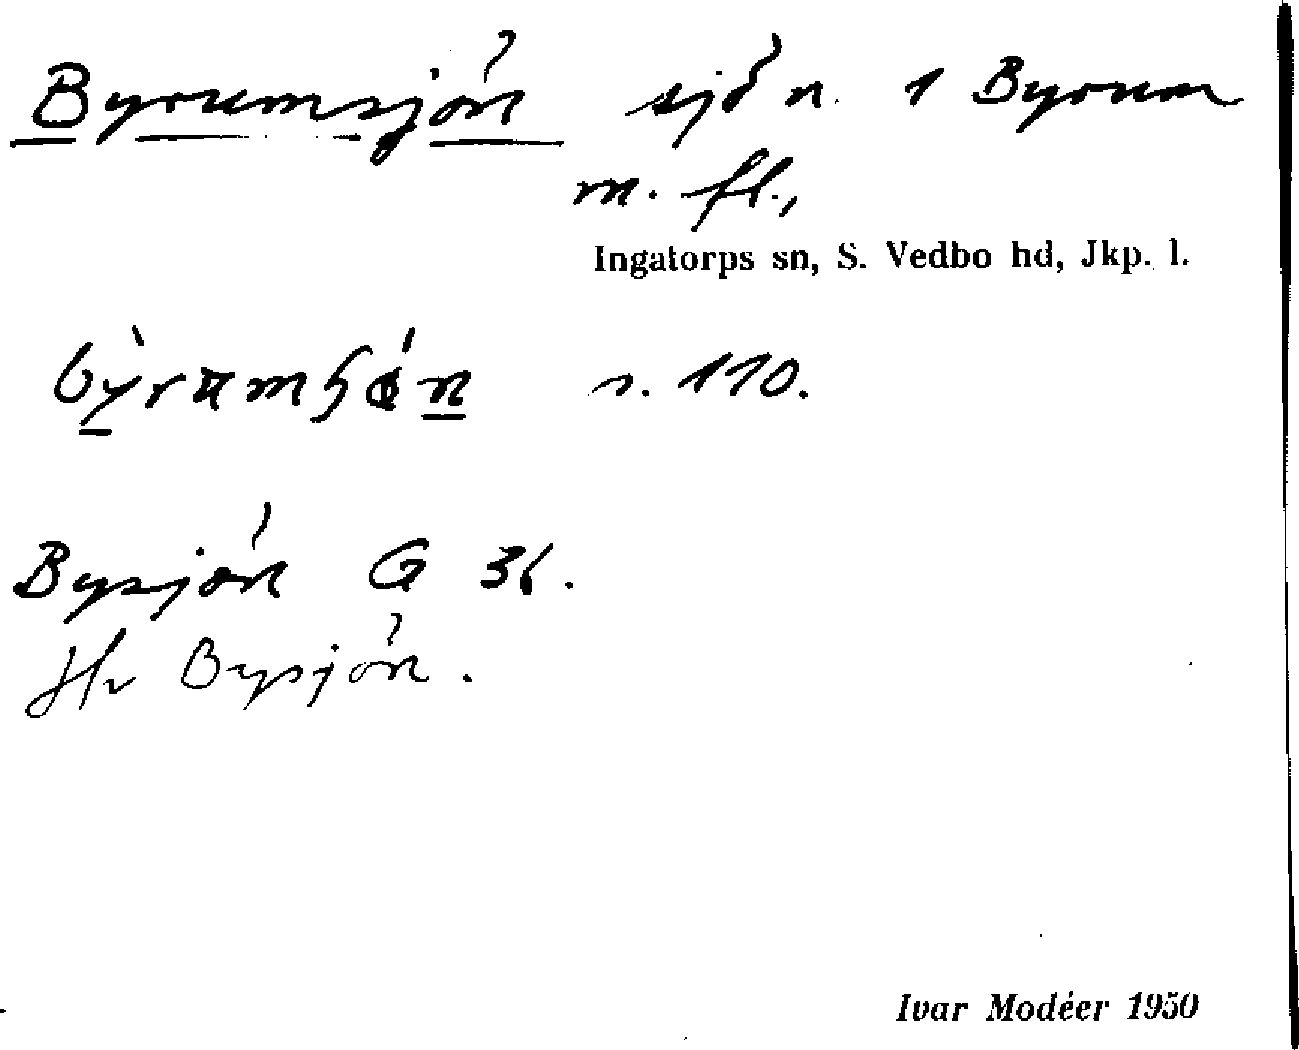 Byrumsjön sjö n. 1 Byrum
m. fl.,
Ingatorps sn, S. Vedbo hd, Jkp. l.
s. 110.
Bysjön G 36.
Hr Bysjön.
Ivar Modéer 1950